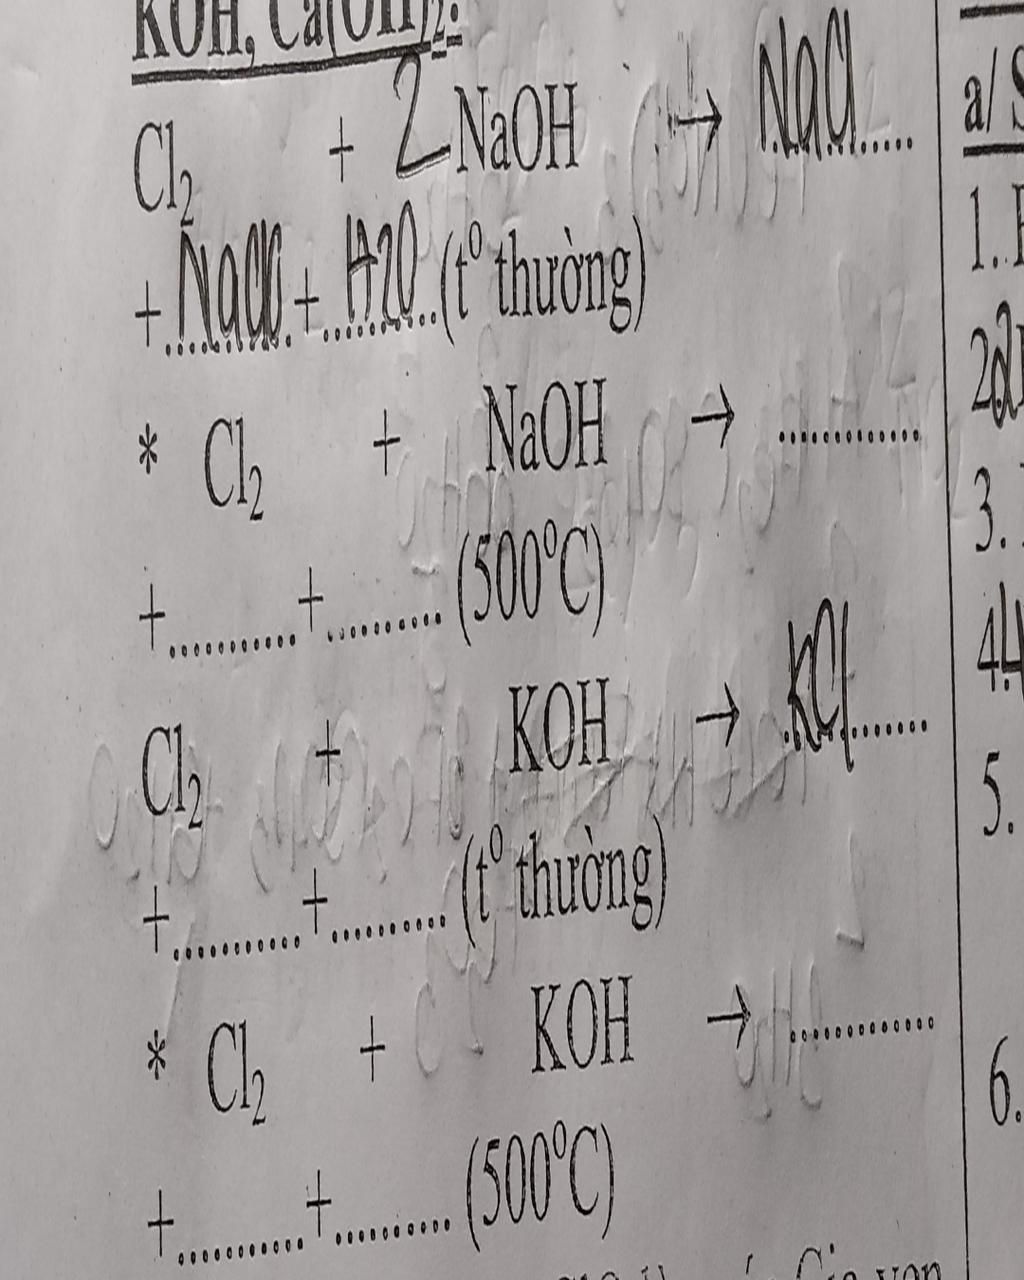 KOH, Ca(OH)₂:
Cl₂ + 2 NaOH → NaCl
+ NaClO + H2O (t⁰ thường)
* Cl₂ + NaOH → ............
+ .......... + .......... (500⁰C)
Cl₂ + KOH → KCl
+ .......... + .......... (t⁰ thường)
* Cl₂ + KOH → ............
+ .......... + .......... (500⁰C)
a/ S
1.
2
3.
4.
5.
6.